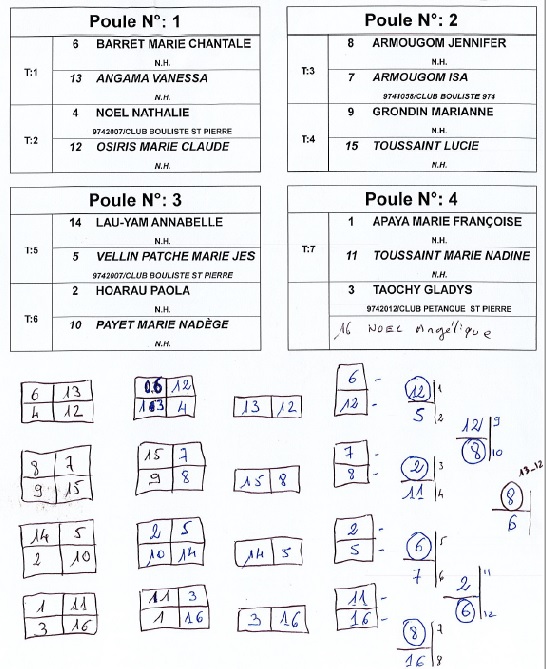 Poule N°: 1
T:1
6 BARRET MARIE CHANTALE
N.H.
13 ANGAMA VANESSA
N.H.
T:2
4 NOEL NATHALIE
9742007/CLUB BOULISTE ST PIERRE
12 OSIRIS MARIE CLAUDE
N.H.
Poule N°: 2
T:3
8 ARMOUGOM JENNIFER
N.H.
7 ARMOUGOM ISA
9741056/CLUB BOULISTE 974
T:4
9 GRONDIN MARIANNE
N.H.
15 TOUSSAINT LUCIE
N.H.
Poule N°: 3
T:5
14 LAU-YAM ANNABELLE
N.H.
5 VELLIN PATCHE MARIE JES
9742007/CLUB BOULISTE ST PIERRE
T:6
2 HOARAU PAOLA
N.H.
10 PAYET MARIE NADÈGE
N.H.
Poule N°: 4
T:7
1 APAYA MARIE FRANÇOISE
N.H.
11 TOUSSAINT MARIE NADINE
N.H.
3 TAOCHY GLADYS
9742012/CLUB PETANQUE ST PIERRE
16 NOEL Angélique
6 13
4 12
6 12
13 4
13 12
6
12
12 1
5 2
12 9
8 10
8 7
9 15
15 7
9 8
15 8
7
8
2 3
11 4
13_12
8
6
14 5
2 10
2 5
10 14
14 5
2
5
6 5
7 6
2 11
6 12
1 11
3 16
11 3
1 16
3 16
11
16
8 7
16 8